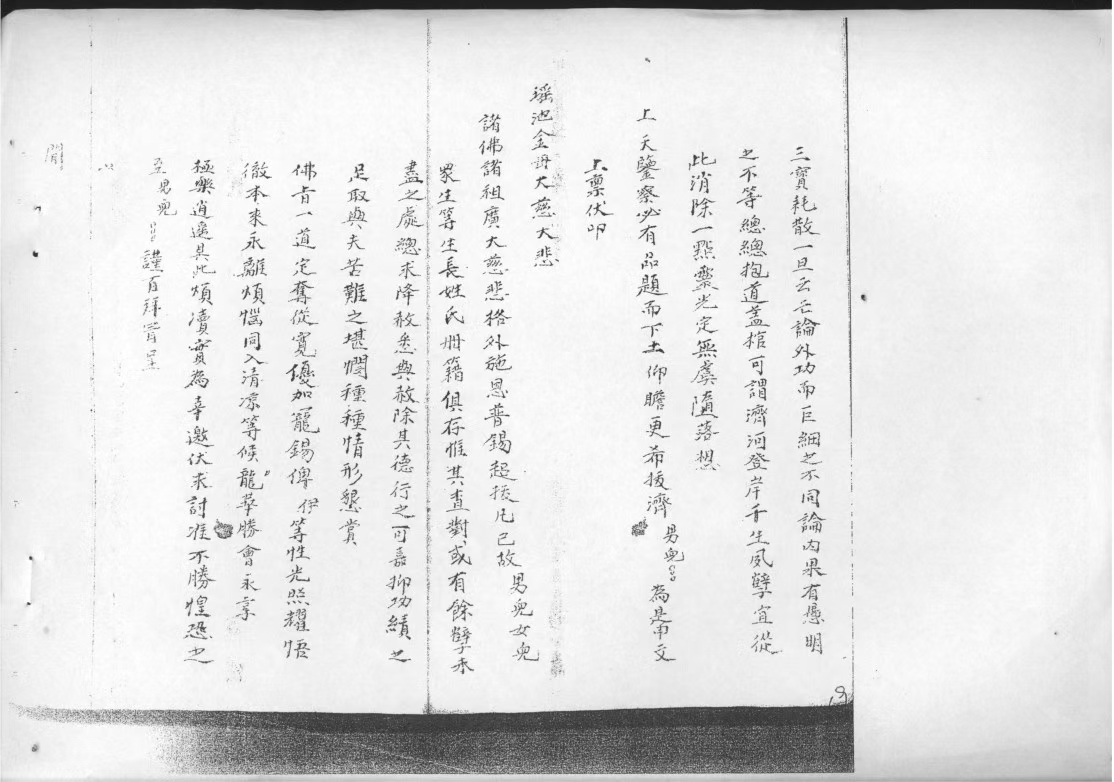 三寶耗散一旦云亡論外功而巨細之不同論內果有愚明
之不等總總抱道蓋棺可謂濟河登岸千生夙孽宜從
此消除一點靈光定無虞墮落想
上天鑒察必有品題而下土仰瞻更希援濟 男兒 為是申文
上稟伏叩
瑤池金母大慈大悲
諸佛諸祖廣大慈悲格外施恩普錫超拔凡已故男兒女兒
眾生等生長姓氏冊籍俱存惟其查對或有餘孽未
盡之處總求降赦悉與赦除其德行之可嘉抑功績之
足取與夫苦難之堪憫種種情形懇賞
佛旨一道定奪從寬優加寵錫俾伊等性光照耀悟
徹本來永離煩惱同入清凉等候龍華勝會永享
極樂逍遙其此煩瀆實為幸邀伏求討准不勝惶恐之
至兒兒 謹百拜百呈